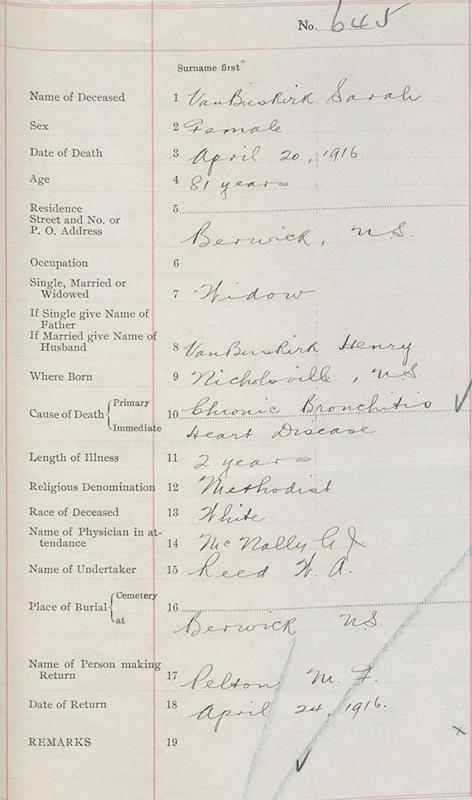 No. 645
Surname first
Name of Deceased 1 VanBuskirk Sarah
Sex 2 Female
Date of Death 3 April 20, 1916.
Age 4 81 years
Residence
Street and No. or 5
P. O. Address Berwick, N.S.
Occupation 6
Single, Married or
Widowed 7 Widow
If Single give Name of
Father
If Married give Name of
Husband 8 VanBuskirk Henry
Where Born 9 Nicholsville, N.S.
Primary
Cause of Death 10 Chronic Bronchitis
Immediate Heart Disease
Length of Illness 11 2 years
Religious Denomination 12 Methodist
Race of Deceased 13 White
Name of Physician in at-
tendance 14 McNally G J
Name of Undertaker 15 Reed W. A.
Cemetery
Place of Burial 16
at Berwick NS.
Name of Person making
Return 17 Pelton M. F.
Date of Return 18 April 24, 1916.
REMARKS 19